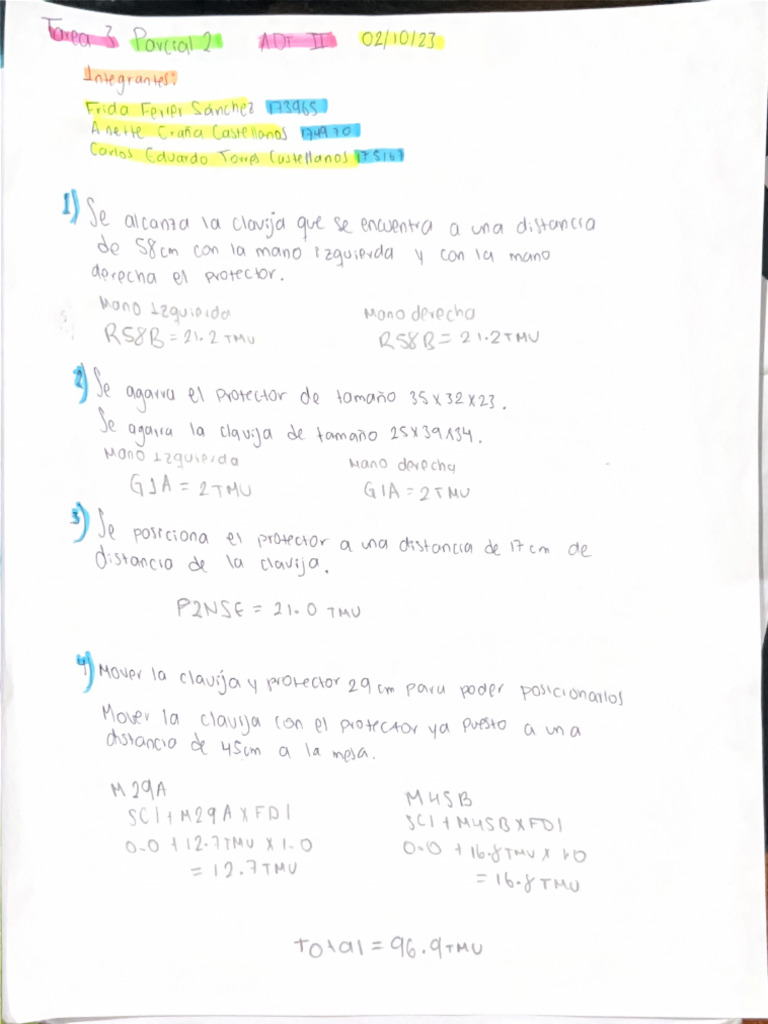 Tarea 3 Parcial 2 ADT II 02/10/23
Integrantes:
Frida Ferrer Sánchez 173965
Anette Graña Castellanos 174970
Carlos Eduardo Torres Castellanos
1) Se alcanza la clavija que se encuentra a una distancia
de 58cm con la mano izquierda y con la mano
derecha el protector.
Mano Izquierda Mano derecha
R58B = 21.2 TMU R58B = 21.2 TMU
2) Se agarra el protector de tamaño 35x32x23.
Se agarra la clavija de tamaño 25x39x34.
Mano Izquierda Mano derecha
G1A = 2 TMU G1A = 2 TMU
3) Se posiciona el protector a una distancia de 17cm de
distancia de la clavija.
P2NSE = 21.0 TMU
4) Mover la clavija y protector 29cm para poder posicionarlos
Mover la clavija con el protector ya puesto a una
distancia de 45cm a la mesa.
M29A M45B
SC1 + M29A x FD1 SC1 + M45B x FD1
0.0 + 12.7 TMU x 1.0 0.0 + 16.8 TMU x 1.0
= 12.7 TMU = 16.8 TMU
Total = 96.9 TMU